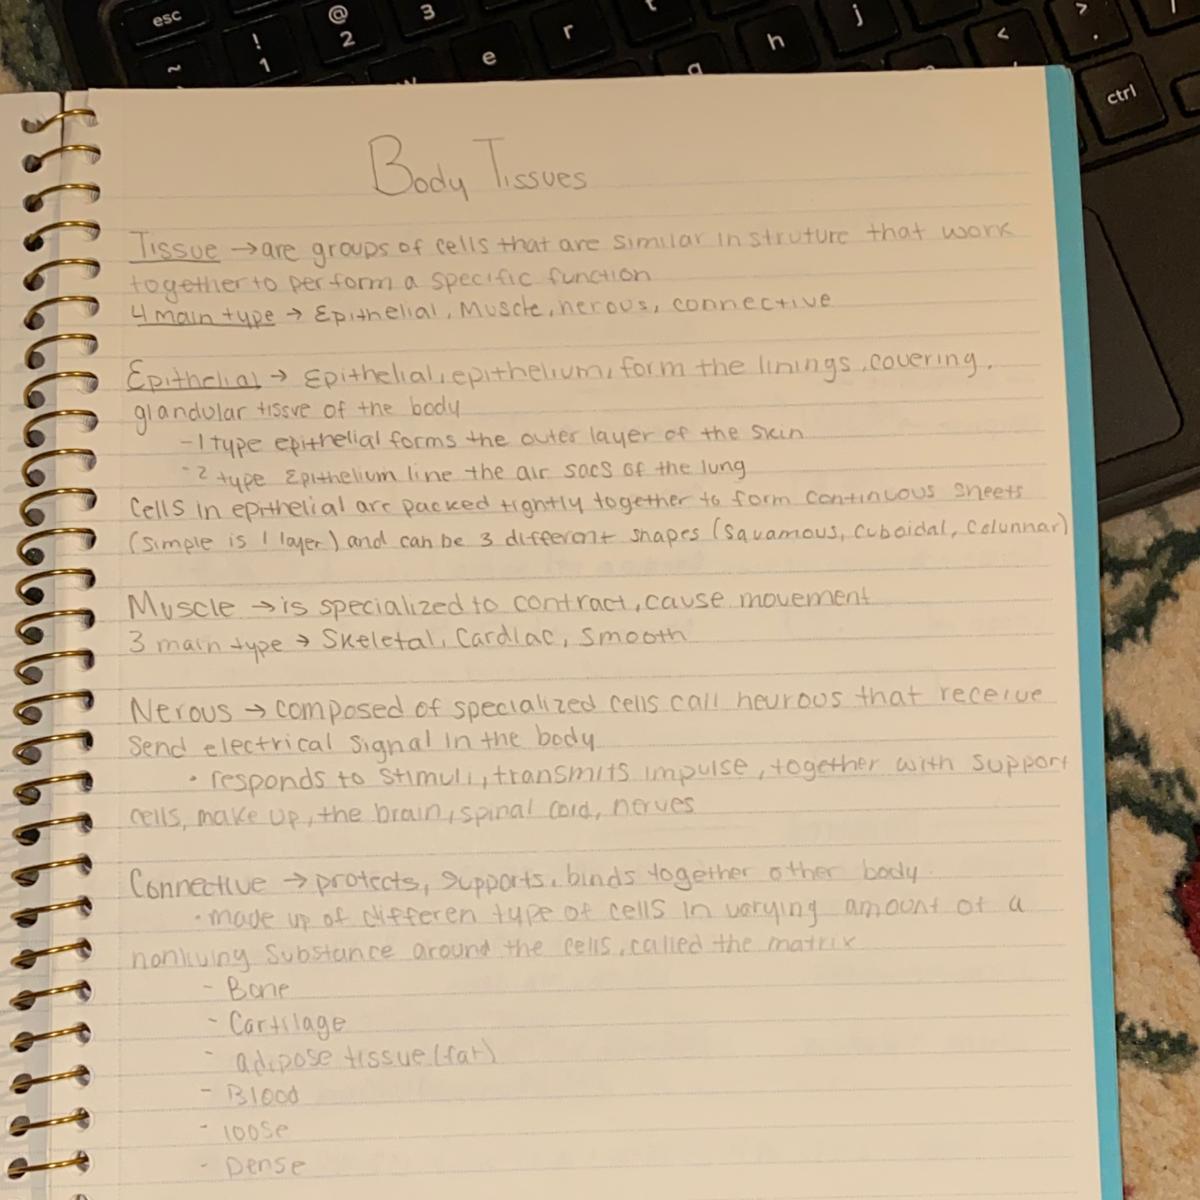 esc
! 1
@ 2
3
~
e
r
t
h
j
<
> .
ctrl
Body Tissues
Tissue → are groups of cells that are similar in struture that work
together to perform a specific function
4 main type → Epithelial, Muscle, nerous, connective
Epithelial → Epithelial, epithelium, form the linings, covering,
glandular tissue of the body
- 1 type epithelial forms the outer layer of the skin
- 2 type Epithelium line the air sacs of the lung
Cells in epithelial are packed tightly together to form continuous sheets
(simple is 1 layer) and can be 3 different shapes (Squamous, Cuboidal, Colunnar)
Muscle → is specialized to contract, cause movement
3 main type → Skeletal, Cardiac, Smooth
Nerous → composed of specialized cells call neurous that receive
send electrical signal in the body
• responds to stimuli, transmits impulse, together with support
cells, make up, the brain, spinal cord, nerves
Connective → protects, supports, binds together other body
• made up of differen type of cells in varying amount of a
nonliving substance around the cells, called the matrix
- Bone
- Cartilage
- adipose tissue (fat)
- Blood
- loose
- Dense